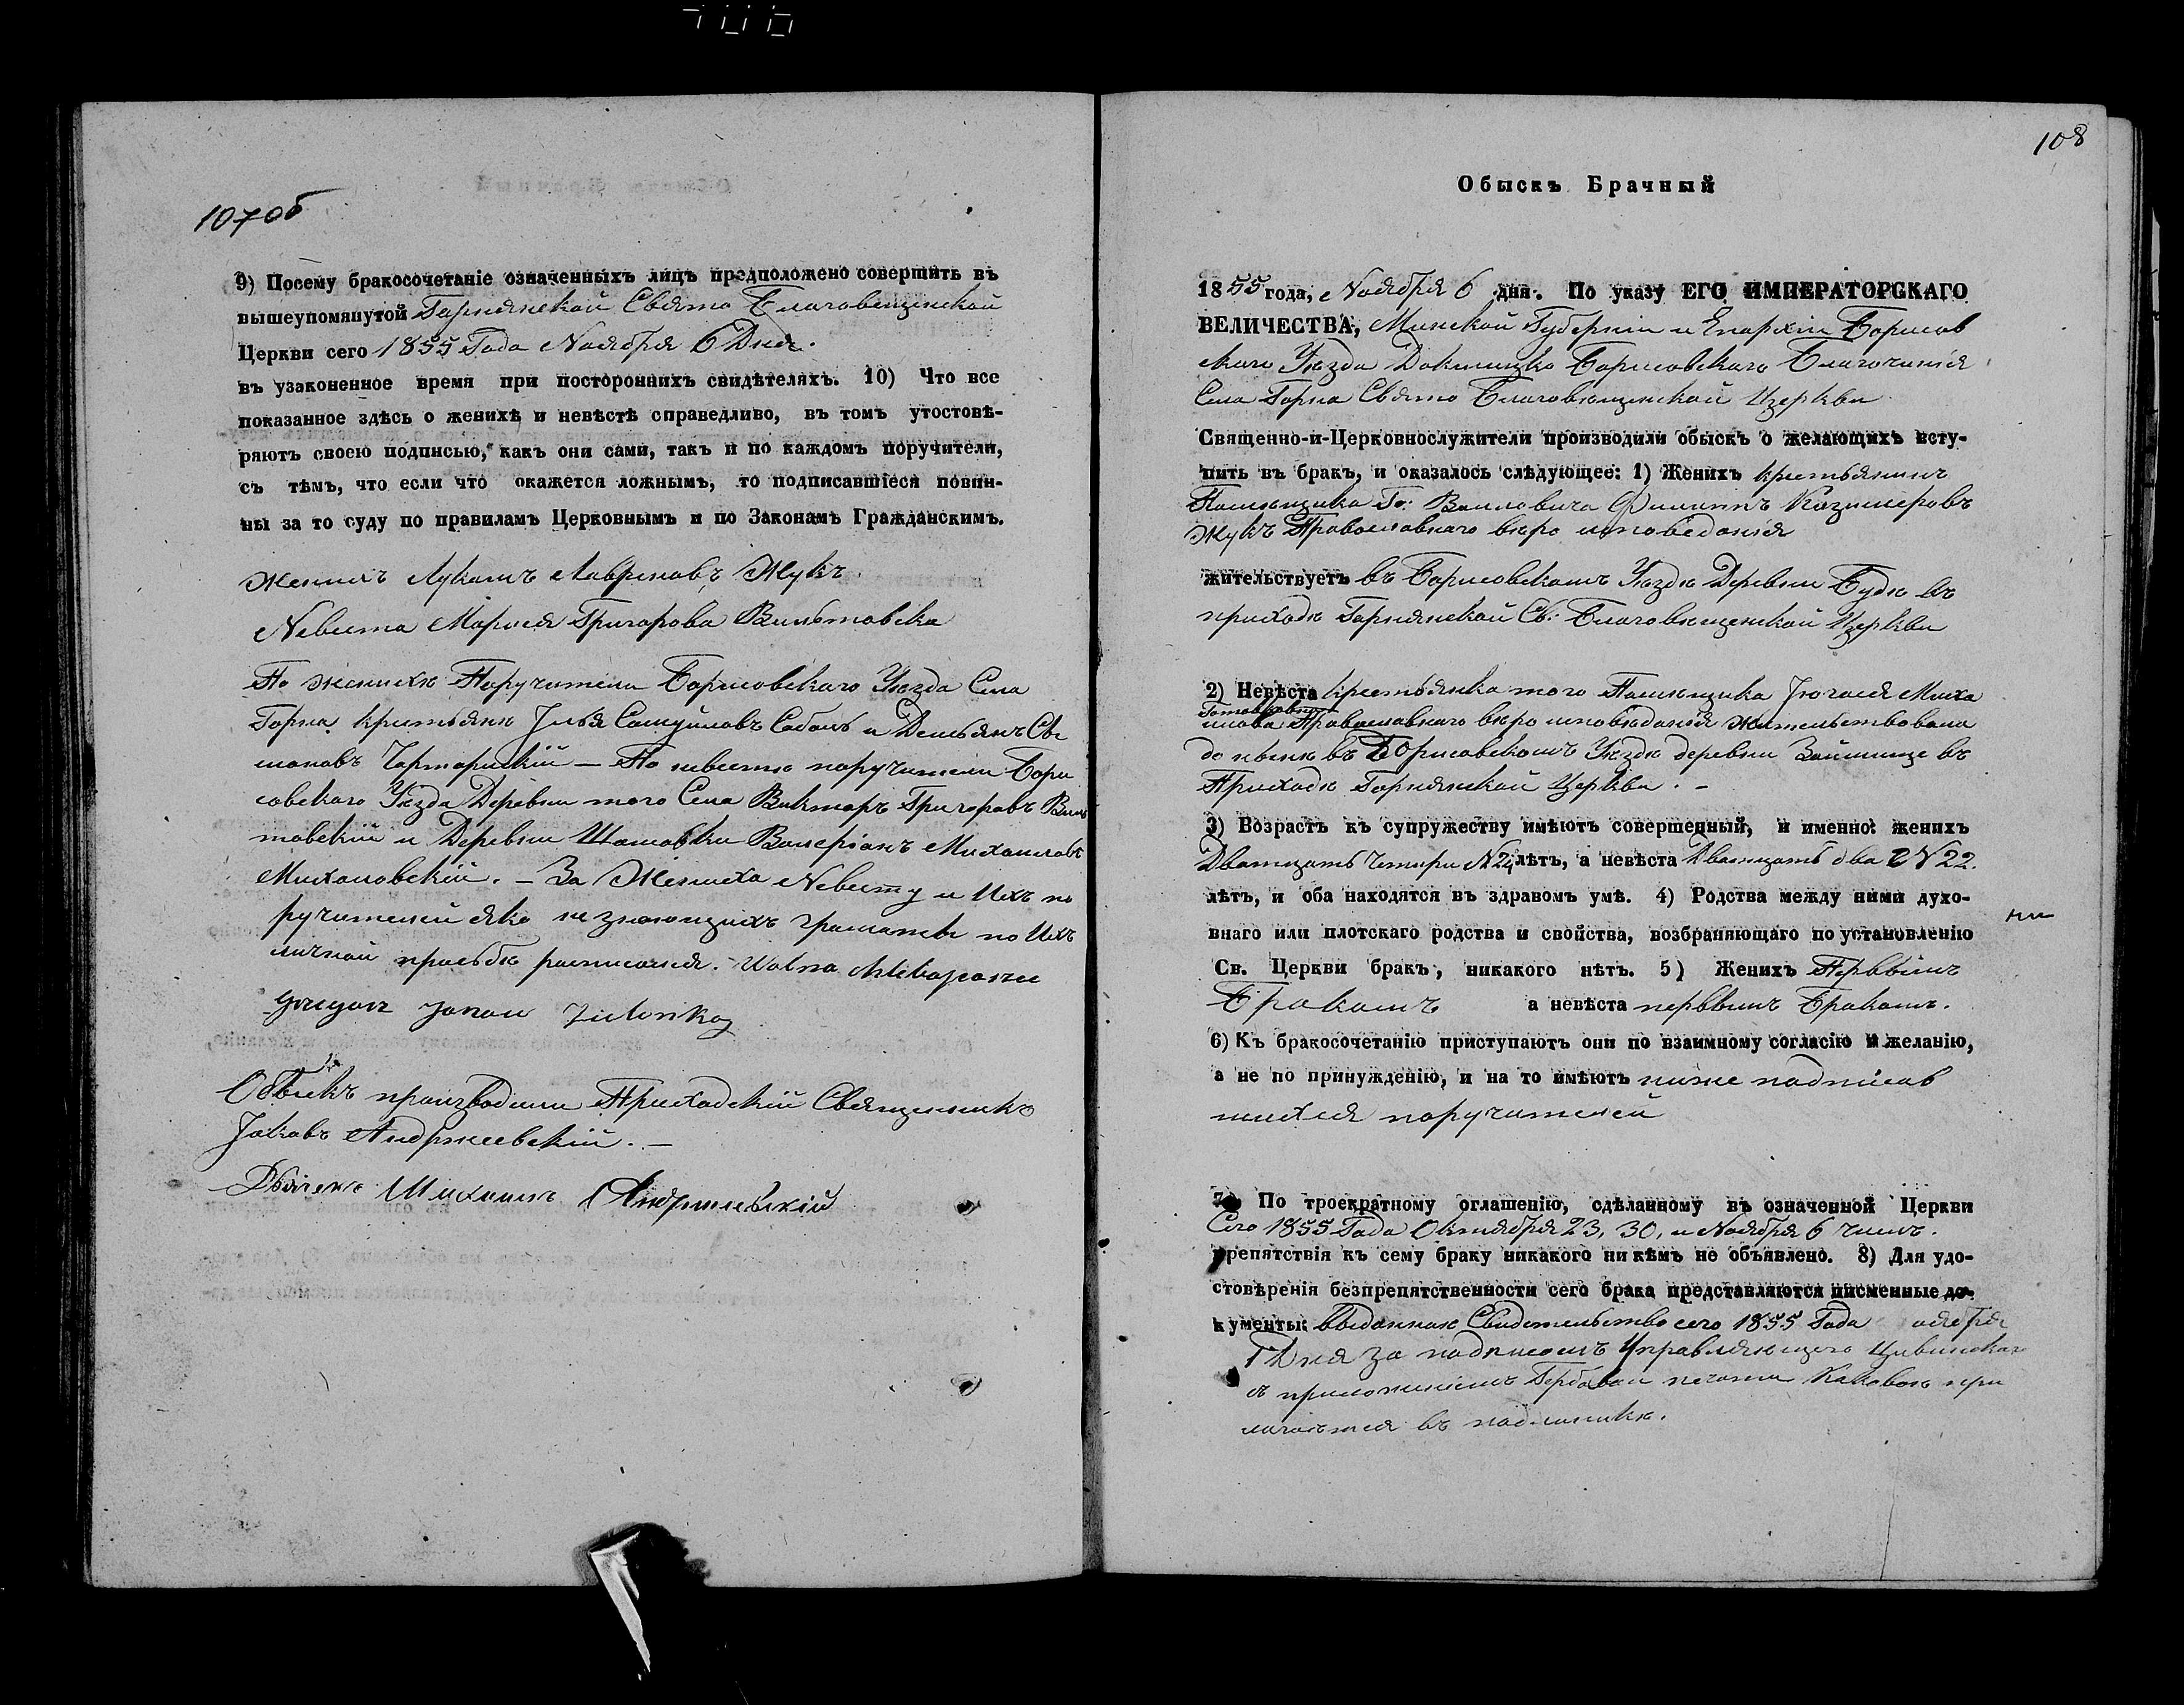 107об
9) Посему бракосочетаніе означенныхъ лицъ предположено совершить въ
вышеупомянутой Горнянской Свято Благовещенской
Церкви сего 1855 Года Ноября 6 Дня.
въ узаконенное время при постороннихъ свидѣтеляхъ. 10) Что все
показанное здѣсь о женихѣ и невѣстѣ справедливо, въ томъ утостовѣ-
ряютъ своею подписью, какъ они сами, такъ и по каждомъ поручители,
съ тѣмъ, что если что окажется ложнымъ, то подписавшіеся повин-
ны за то суду по правиламъ Церковнымъ и по Законамъ Гражданскимъ.
Женихъ Лукашъ Лавреновъ Жукъ.
Невеста Марыся Григорова Вильтовска
По женихѣ Поручители Борисовскаго Уѣзда Села
Горна крестьяне Илья Самуйловъ Соболь и Демьянъ Се
моновъ Чарторискій — По невестѣ поручители Бори
совскаго Уѣзда Деревни того Села Викторъ Григоровъ Виль
товскій и Деревни Валеріянъ Михаиловъ
Михаловскій. — За Жениха Невесту и Ихъ по
ручителей яко не знающихъ грамоты по Ихъ
личной просьбѣ росписался.
Jonow
Обыскъ производили Приходскій Священникъ
Іаковъ Андржеевскій. —
Дьячекъ Михаилъ Андржеевскій
108
Обыскъ Брачный
1855 года, Ноября 6 дня. По указу ЕГО ИМПЕРАТОРСКАГО
ВЕЛИЧЕСТВА, Минской Губерніи и Епархіи Борисов
скаго Уѣзда Докшицко Борисовскаго Благочинія
Села Горна Свято Благовѣщенской Церкви
Священно-и-Церковнослужители производили обыскъ о желающихъ всту-
пить въ брак, и оказалось слѣдующее: 1) Женихъ крестьянинъ
Помѣщика Го: Воиловича Филипъ Казимеровъ
Жукъ Православнаго вѣро исповеданія
жительствуетъ въ Борисовскомъ Уѣздѣ Деревни Будѣ въ
приходѣ Горнянской Св. Благовѣщенской Церкви
2) Невѣста крестьянка того Помѣщика Михаи
лова Православнаго вѣро исповѣданія жительствовала
до нынѣ въ Борисовскомъ Уѣздѣ деревни въ
Приходѣ Горнянской Церкви. —
3) Возрастъ къ супружеству имѣютъ совершенный, и именно: женихъ
Дватцать Четыри N 24 лѣтъ, а невѣста Дватцать два N 22.
лѣтъ, и оба находятся въ здравомъ умѣ. 4) Родства между ними духо-
внаго или плотскаго родства и свойства, возбраняющаго по установленію
Св. Церкви бракъ, никакого нѣтъ. 5) Женихъ Первымъ
Бракомъ а невѣста первымъ Бракомъ.
6) Къ бракосочетанію приступаютъ они по взаимному согласію и желанію,
а не по принужденію, и на то имѣютъ ниже подписав
шихся поручителей
7) По троекратному оглашенію, сдѣланному въ означенной Церкви
Сего 1855 Года Октября 23, 30, и Ноября 6 числъ.
препятствія къ сему браку никакого ни кѣмъ не объявлено. 8) Для удо-
стовѣренія безпрепятственности сего брака представляются писменные до-
кументы: Выданное Свидетельство сего 1855 Года
Дня за подписомъ Управляющего
съ приложеніемъ Гербовой печати Каковое при
лагается въ подлинникѣ.